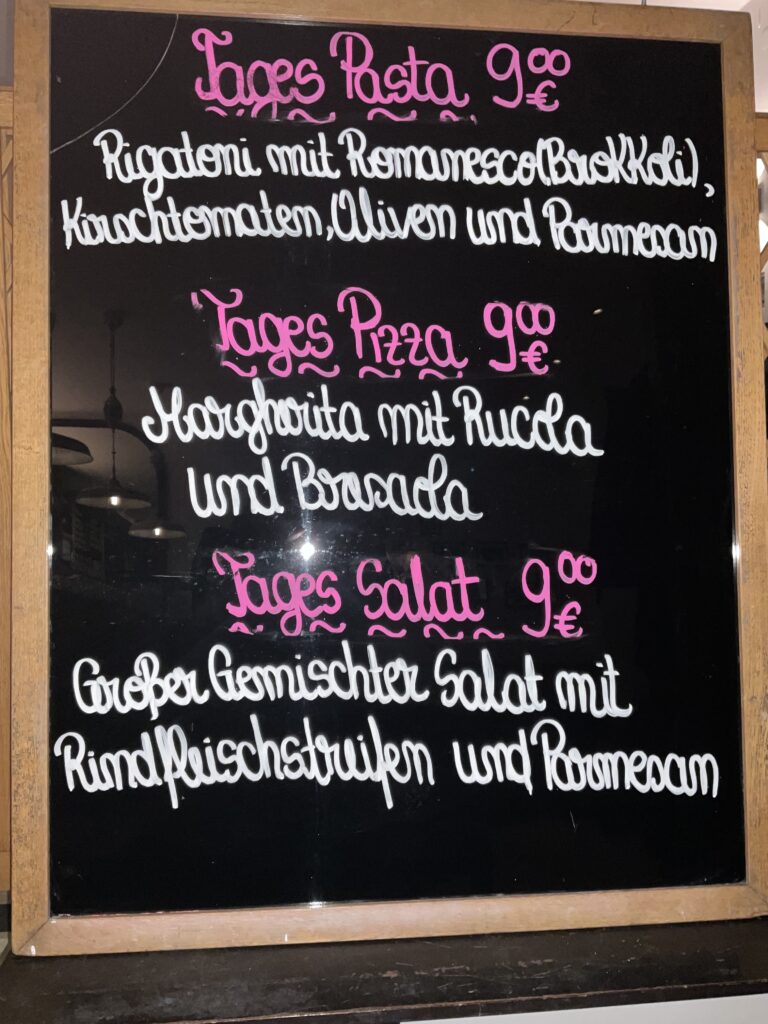 Tages Pasta 9⁰⁰ €
Rigatoni mit Romanesco(Brokkoli),
Kirschtomaten, Oliven und Parmesan
Tages Pizza 9⁰⁰ €
Margherita mit Rucola
und Brasaola
Tages Salat 9⁰⁰ €
Großer Gemischter Salat mit
Rindfleischstreifen und Parmesan